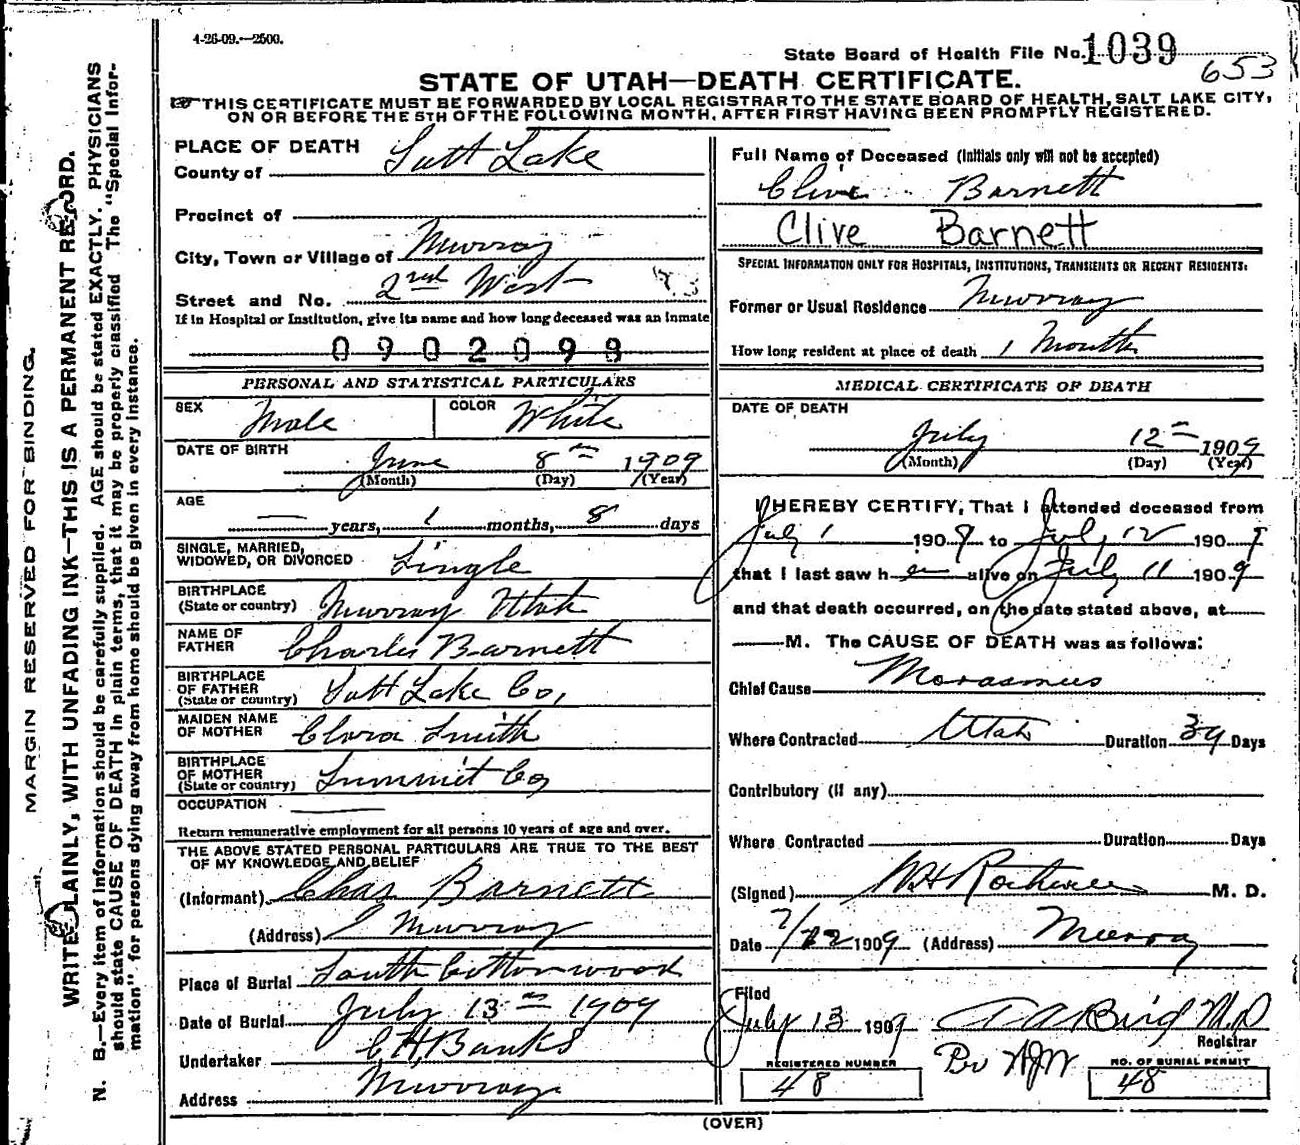 4-26-09.—2500.
State Board of Health File No. 1039
653
STATE OF UTAH—DEATH CERTIFICATE.
THIS CERTIFICATE MUST BE FORWARDED BY LOCAL REGISTRAR TO THE STATE BOARD OF HEALTH, SALT LAKE CITY,
ON OR BEFORE THE 5TH OF THE FOLLOWING MONTH, AFTER FIRST HAVING BEEN PROMPTLY REGISTERED.
MARGIN RESERVED FOR BINDING.
WRITE PLAINLY, WITH UNFADING INK—THIS IS A PERMANENT RECORD.
N. B.—Every item of information should be carefully supplied. AGE should be stated EXACTLY. PHYSICIANS
should state CAUSE OF DEATH in plain terms, that it may be properly classified. The "Special Infor-
mation" for persons dying away from home should be given in every instance.
PLACE OF DEATH
County of Salt Lake
Precinct of
City, Town or Village of Murray
Street and No. 2nd West
If in Hospital or Institution, give its name and how long deceased was an inmate
0902098
PERSONAL AND STATISTICAL PARTICULARS
SEX Male COLOR White
DATE OF BIRTH June 8th 1909
(Month) (Day) (Year)
AGE — years, 1 months, 8 days
SINGLE, MARRIED,
WIDOWED, OR DIVORCED Single
BIRTHPLACE
(State or country) Murray Utah
NAME OF
FATHER Charles Barnett
BIRTHPLACE
OF FATHER
(State or country) Salt Lake Co,
MAIDEN NAME
OF MOTHER Clara Smith
BIRTHPLACE
OF MOTHER
(State or country) Summit Co,
OCCUPATION
Return remunerative employment for all persons 10 years of age and over.
THE ABOVE STATED PERSONAL PARTICULARS ARE TRUE TO THE BEST
OF MY KNOWLEDGE AND BELIEF
(Informant) Chas Barnett
(Address) Murray
Place of Burial South Cottonwood
Date of Burial July 13th 1909
Undertaker C.H. Banks
Address Murray
Full Name of Deceased (Initials only will not be accepted)
Clive Barnett
Clive Barnett
SPECIAL INFORMATION ONLY FOR HOSPITALS, INSTITUTIONS, TRANSIENTS OR RECENT RESIDENTS:
Former or Usual Residence Murray
How long resident at place of death 1 Month
MEDICAL CERTIFICATE OF DEATH
DATE OF DEATH
July 12th 1909
(Month) (Day) (Year)
I HEREBY CERTIFY, That I attended deceased from
July 1 1909 to July 12 1909
that I last saw h alive on July 11 1909
and that death occurred, on the date stated above, at
M. The CAUSE OF DEATH was as follows:
Chief Cause Marasmus
Where Contracted Utah Duration 39 Days
Contributory (if any)
Where Contracted Duration Days
(Signed) M. D.
Date 7/12 1909 (Address) Murray
Filed
July 13 1909 Bird M.D
Registrar
REGISTERED NUMBER
48
NO. OF BURIAL PERMIT
48
(OVER)